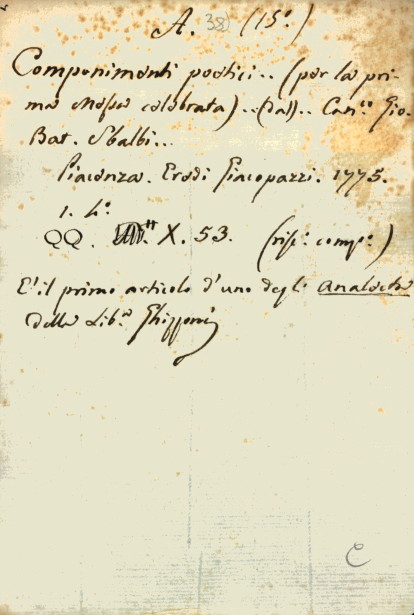 A. 38) (15.º)
Componimenti poetici.. (per la pri-
ma Messa celebrata)..(dal).. Can.co Gio.
Bat. Sbalbi..
Piacenza. Eredi Giacopazzi. 1775.
1. 4.º
QQ. X. 53. (risp.e comp.e)
E' il primo articolo d'uno degli Analecta
della Lib.a Ghizzoni
C